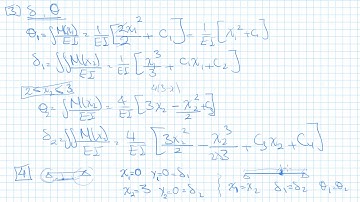 ③ δ, θ
θ₁ = ∫ M(x₁)/EI = 1/EI [2x₁²/2 + C₁] = 1/EI [x₁² + C₁]
δ₁ = ∬ M(x₁)/EI = 1/EI [x₁³/3 + C₁x₁ + C₂]
2 ≤ x₂ ≤ 3
4(3-x)
θ₂ = ∫ M(x₂)/EI = 4/EI [3x₂ - x₂²/2 + C₃]
δ₂ = ∬ M(x)/EI = 4/EI [3x₂²/2 - x₂³/2·3 + C₃x₂ + C₄]
④ x₁=0 y₁=0=δ₁ x₁=x₂ δ₁=δ₂ θ₁=θ₂
x₂=3 y₂=0=δ₂